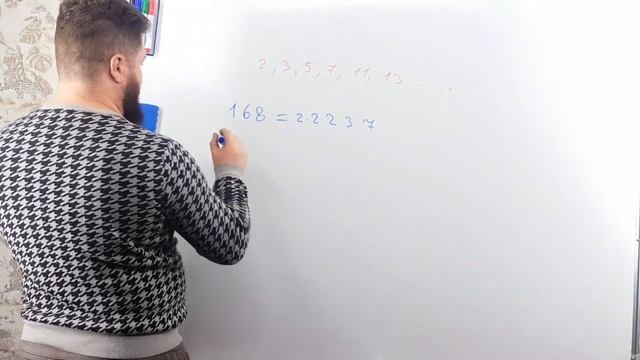 2, 3, 5, 7, 11, 13 .....
168 = 2·2·2·3·7